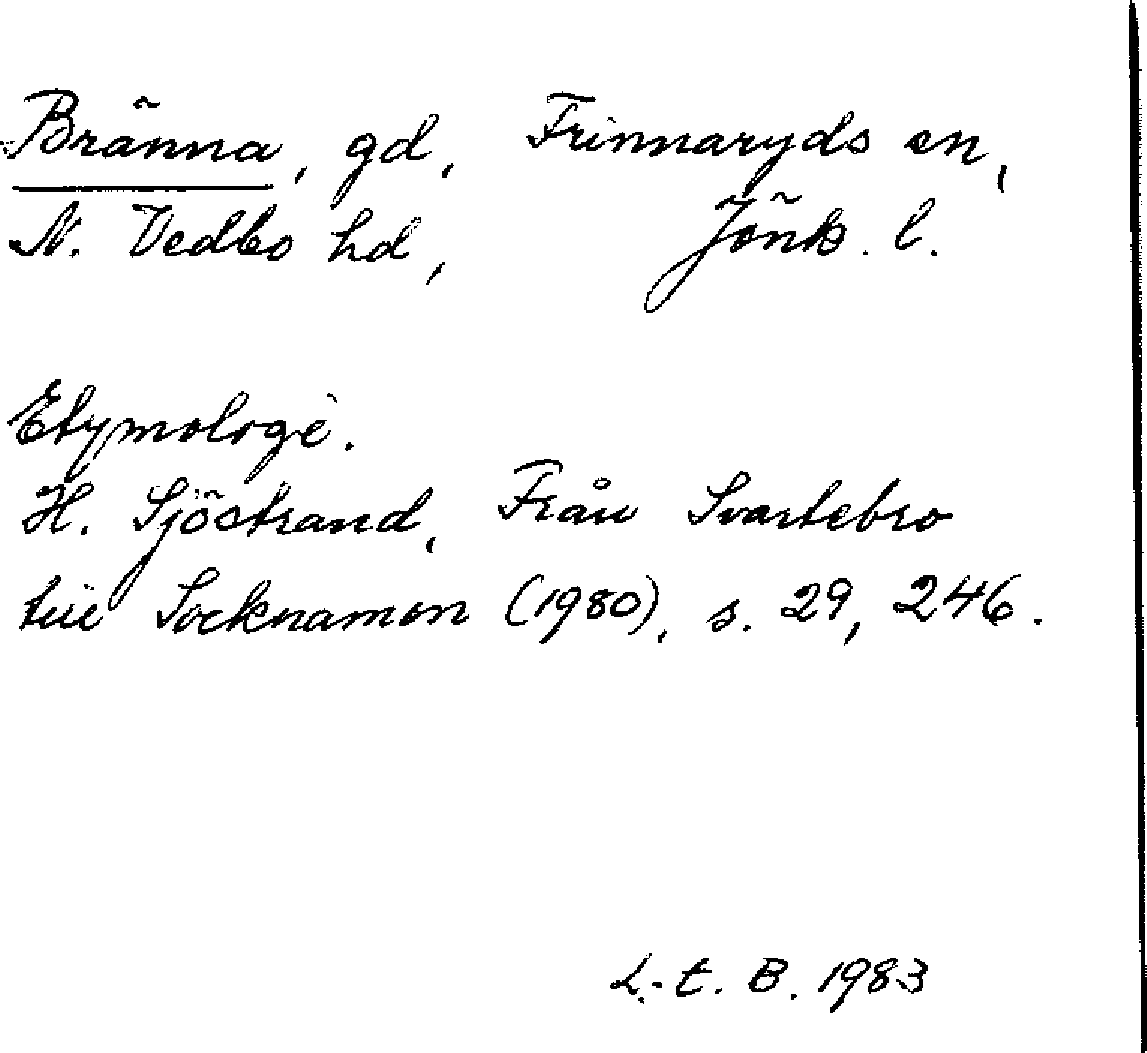 Bränna, gd, Frinnaryds sn,
N. Vedbo hd, Jönk. l.
Etymologi.
H. Sjöstrand, Från Svartebro
till Socknamon (1980), s. 29, 246.
L.-E. B. 1983